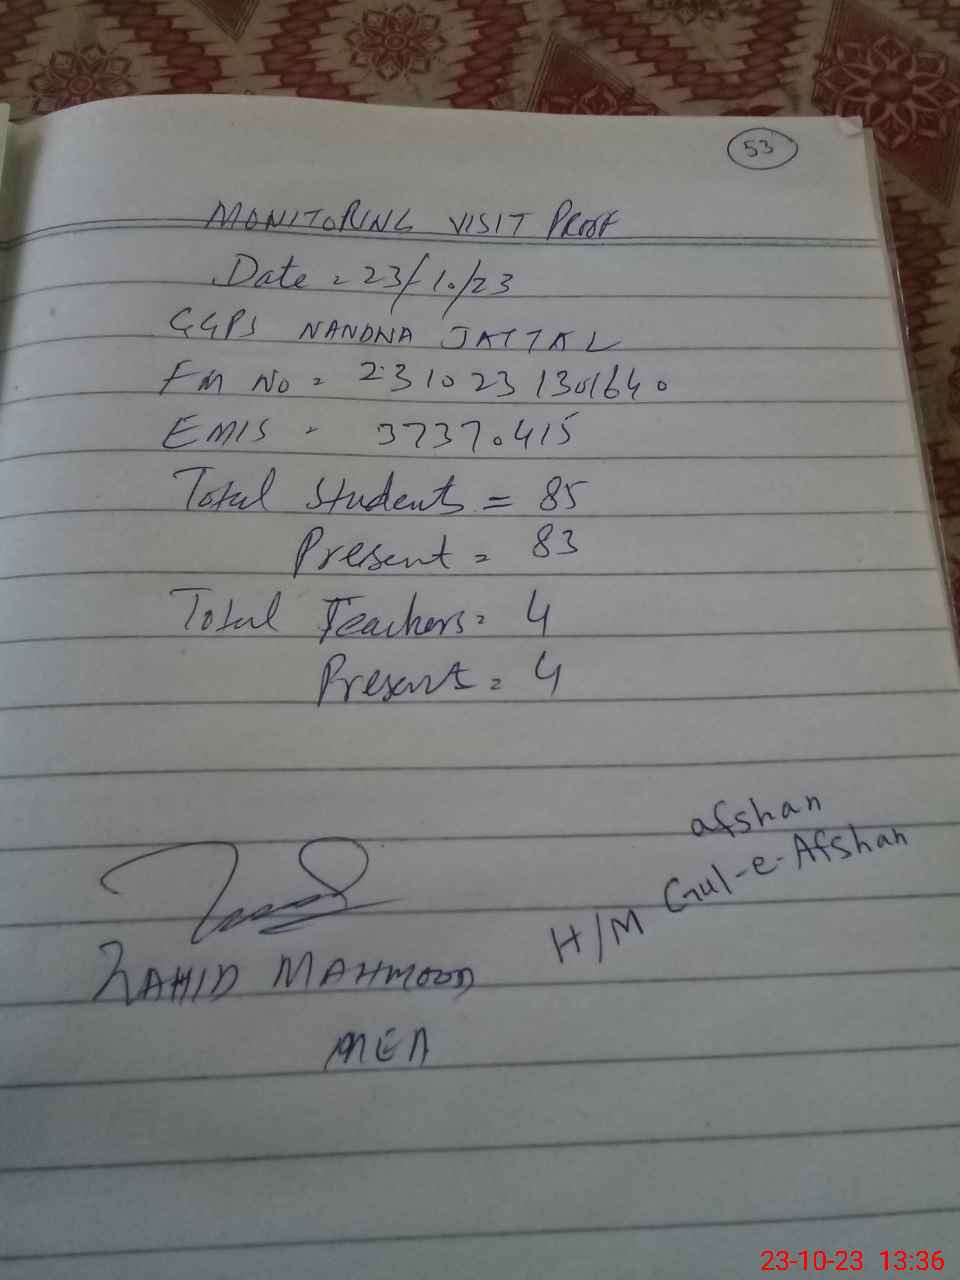 53
MONITORING VISIT PROOF
Date = 23/10/23
GGPS NANDNA JATTAL
FM No = 231023 1301640
EMIS - 37370415
Total Students = 85
Present = 83
Total Teachers = 4
Present = 4
afshan
H/M Gul-e-Afshan
ZAHID MAHMOOD
MEA
23-10-23 13:36